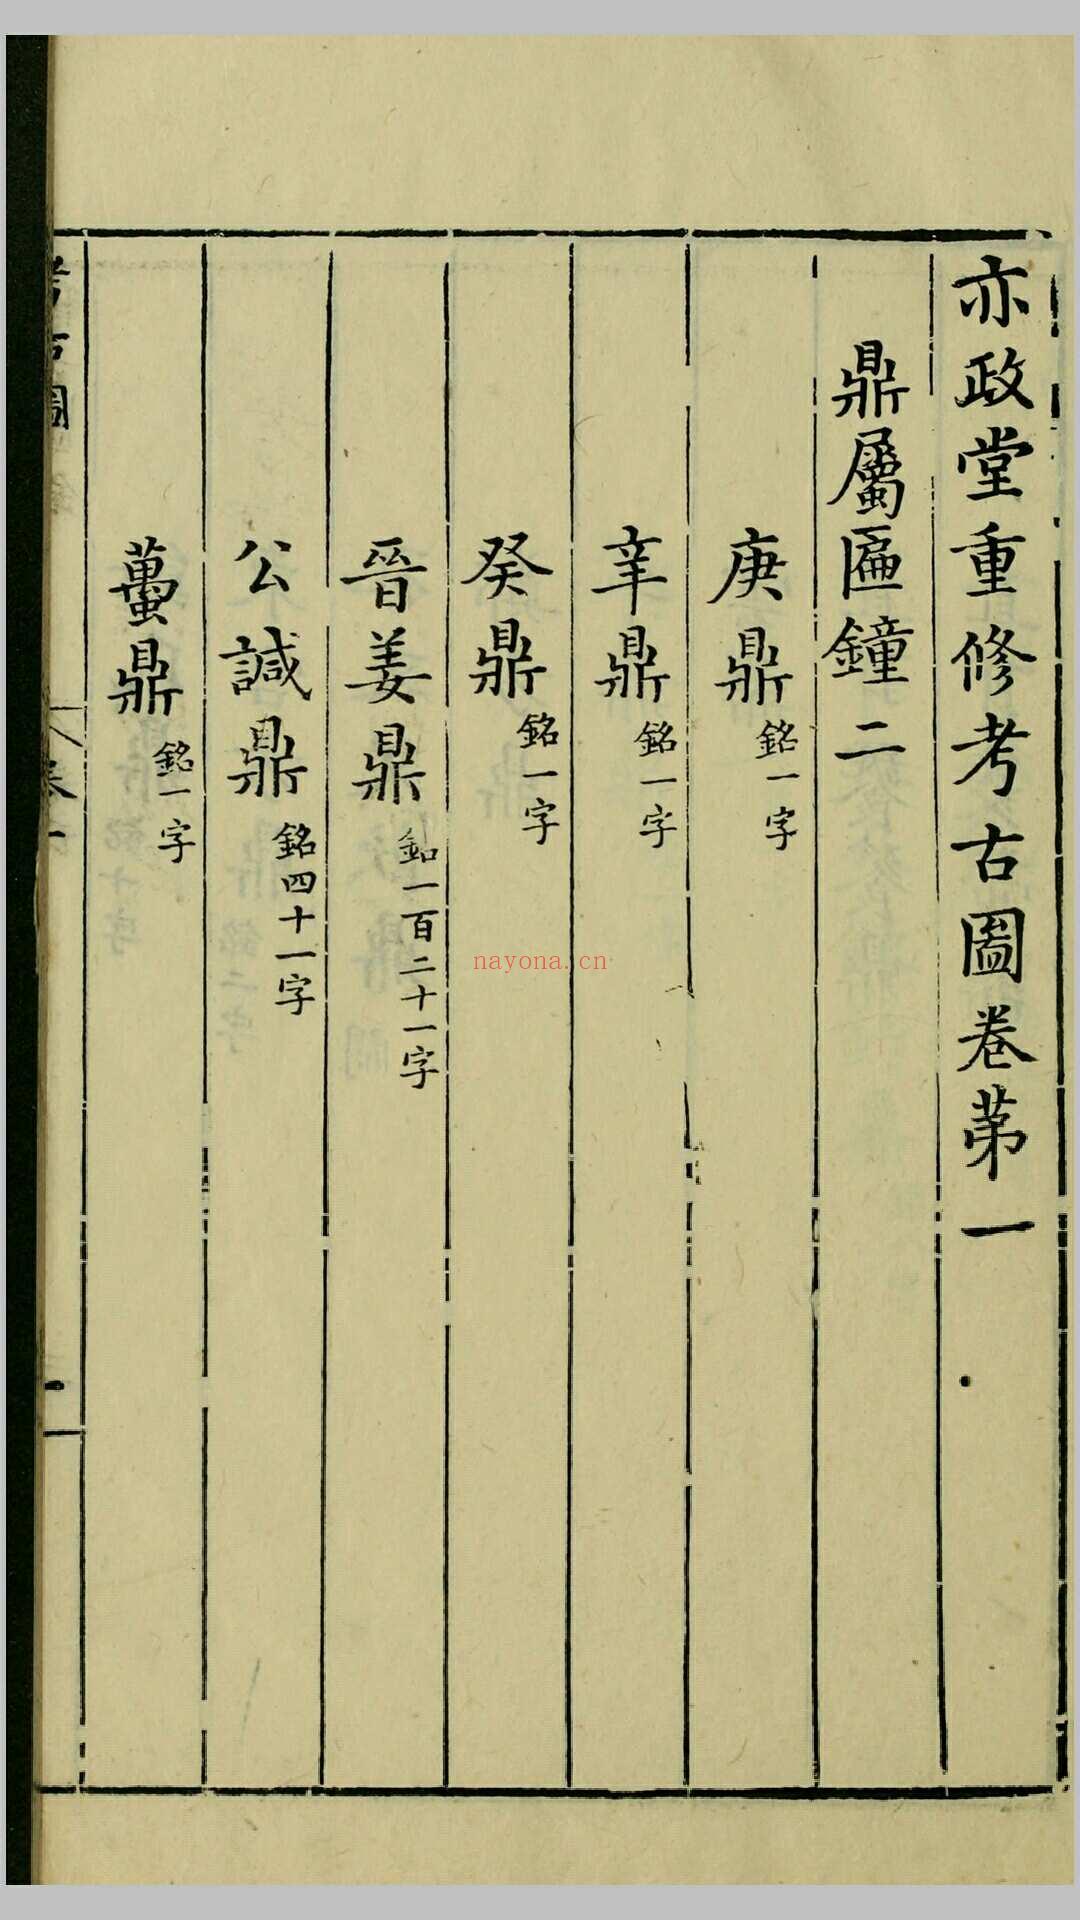 亦政堂重修考古圖卷苐一
鼎屬匜鐘二
庚鼎 銘一字
辛鼎 銘一字
癸鼎 銘一字
晉姜鼎 銘一百二十一字
公諴鼎 銘四十一字
蠆鼎 銘一字
考古圖 卷一 一
nayona.cn